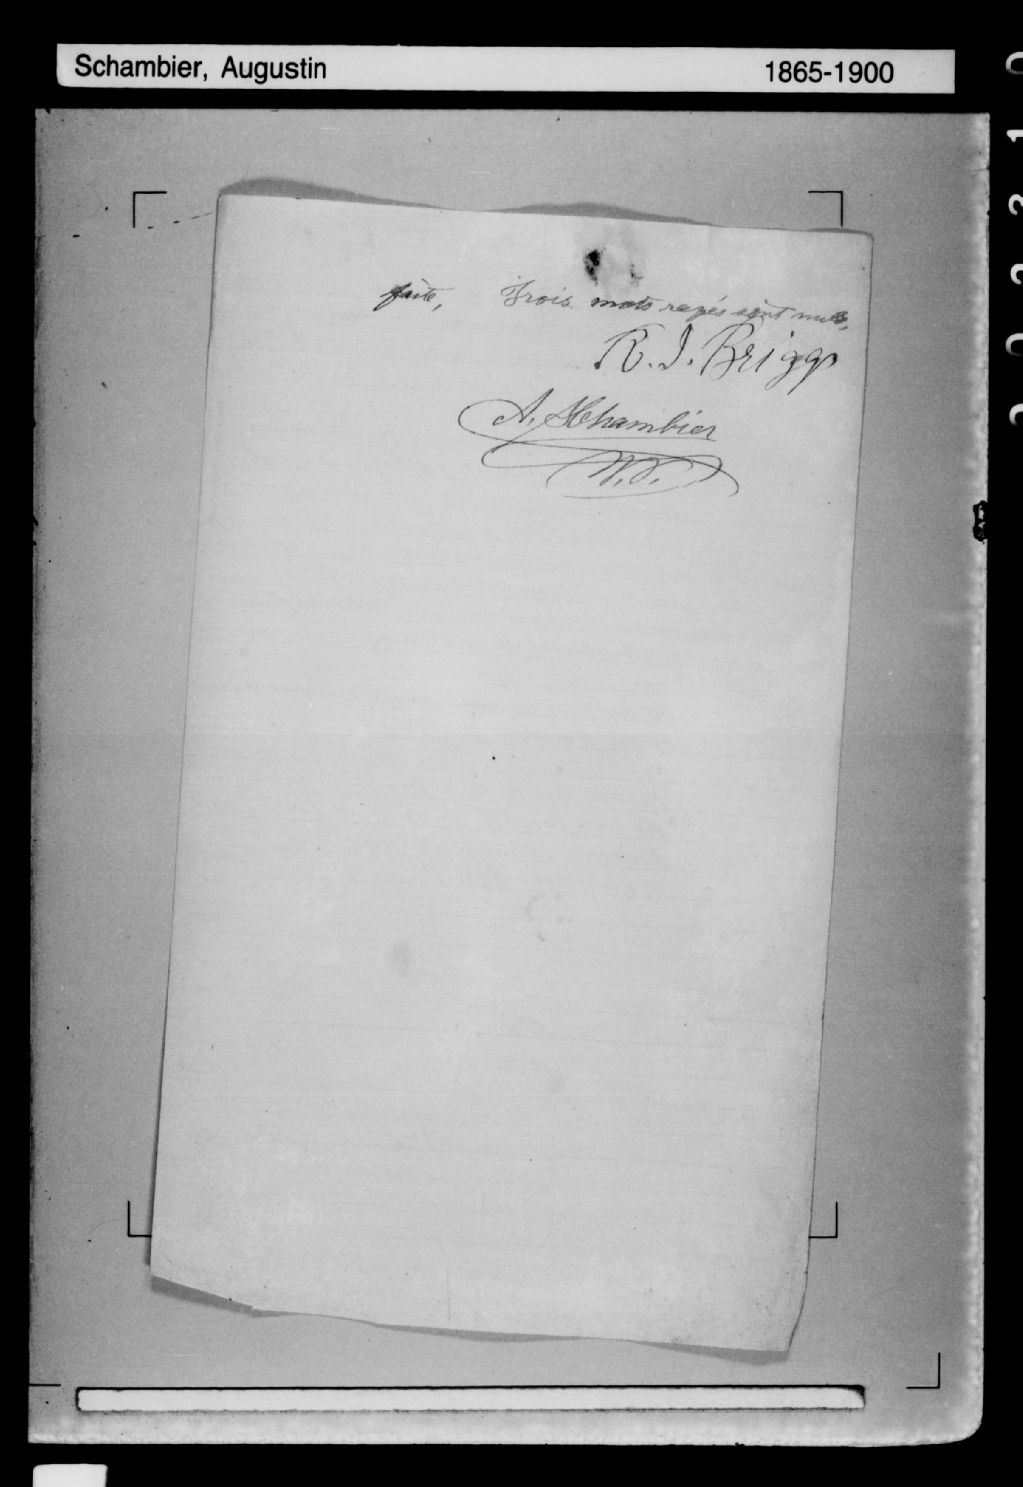 Schambier, Augustin 1865-1900
faite, Trois mots rayés sont nuls,
R. J. Briggs
A. Schambier
N.P.